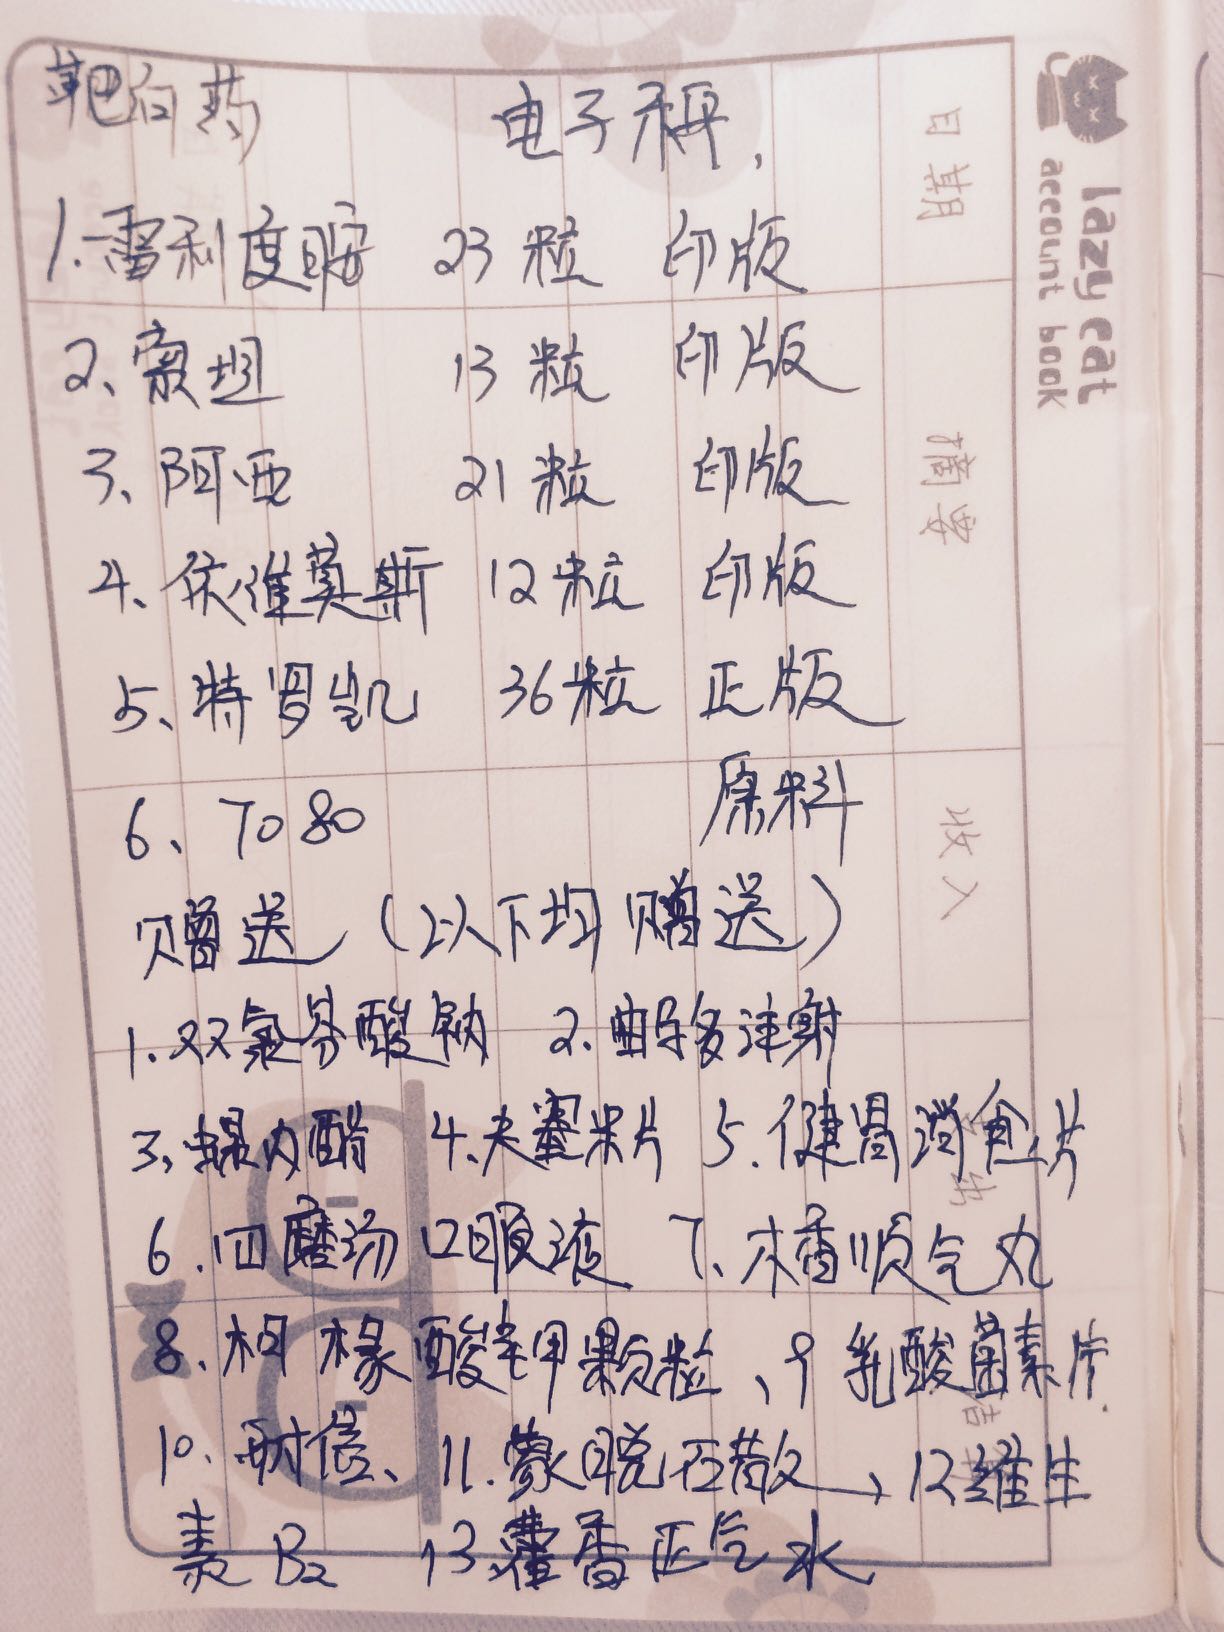 靶向药 电子称,
1.雷利度胺 23粒 印版
2、索坦 13粒 印版
3、阿西 21粒 印版
4、依维莫斯 12粒 印版
5、特肾凯 36粒 正版
6、7080 原料
赠送(以下均赠送)
1.双氯芬酸钠 2.曲马多注射
3、螺内酯 4.大蜜米片 5.健胃消食片
6.四磨汤口服液 7、木香顺气丸
8、枸橼酸钾颗粒、9乳酸菌素片
10、耐信、11.蒙脱石散、12维生
素B2 13藿香正气水
日期
摘要
收入
lazy cat
account book